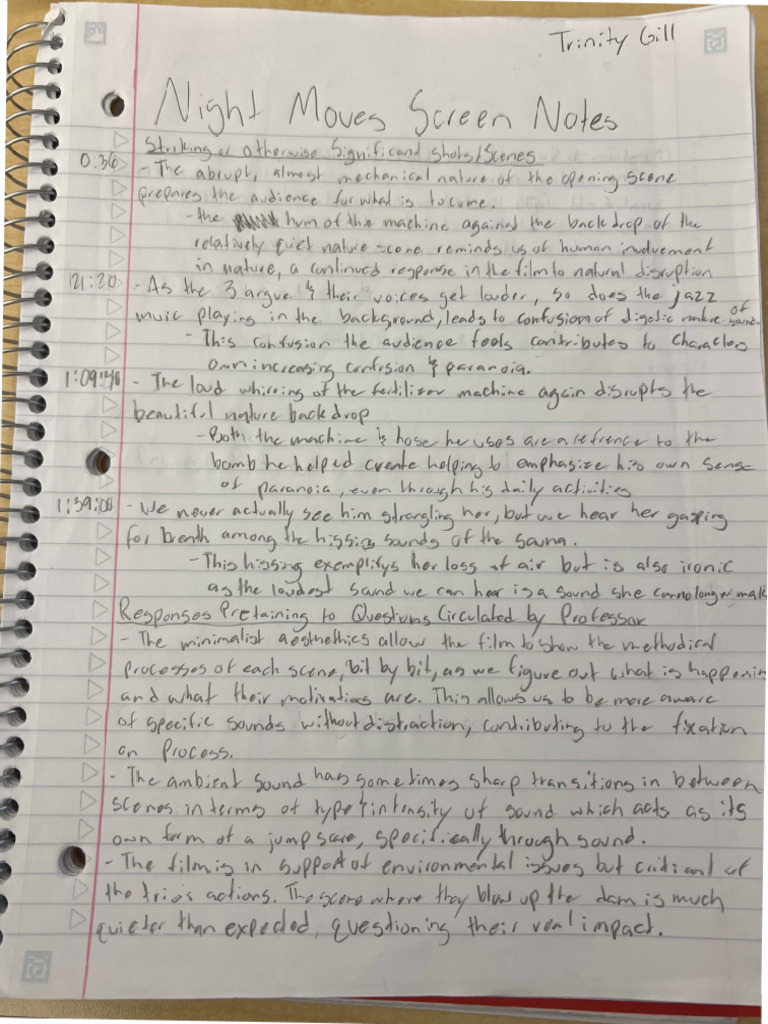 Trinity Gill
Night Moves Screen Notes
Striking or otherwise Significant Shots/Scenes
0.36 - The abrupt, almost mechanical nature of the opening scene
prepares the audience for what is to come.
- the hum of the machine against the backdrop of the
relatively quiet nature scene reminds us of human involvement
in nature, a continued response in the film to natural disruption
21:20 - As the 3 argue & their voices get louder, so does the jazz
music playing in the background, leads to confusion of digetic nature of sound.
- This confusion the audience feels contributes to characters
own increasing confusion & paranoia.
1:09:48 - The loud whirring of the fertilizer machine again disrupts the
beautiful nature backdrop
- Both the machine & hose he uses are a refrence to the
bomb he helped create helping to emphasize his own sense
of paranoia, even through his daily activities
1:39:00 - We never actually see him strangling her, but we hear her gasping
for breath among the hissing sounds of the sauna.
- This hissing exemplifys her loss of air but is also ironic
as the loudest sound we can hear is a sound she can no longer make
Responses Pretaining to Questions Circulated by Professor
- The minimalist aesthethics allow the film to show the methodical
processes of each scene, bit by bit, as we figure out what is happening
and what their motivations are. This allows us to be more aware
of specific sounds without distraction, contributing to the fixation
on Process.
- The ambient sound has sometimes sharp transitions in between
scenes in terms of type & intensity of sound which acts as its
own form of a jumpscare, specifically through sound.
- The film is in support of environmental issues but critical of
the trio's actions. The scene where they blow up the dam is much
quieter than expected, questioning their real impact.